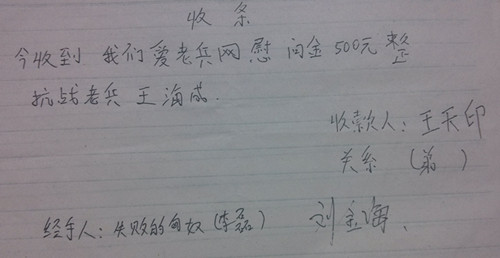 收条
今收到 我们爱老兵网慰问金500元整
抗战老兵 王海成.
收款人：王天印
关系（弟）
经手人：失败的匈奴（李磊） 刘金海.